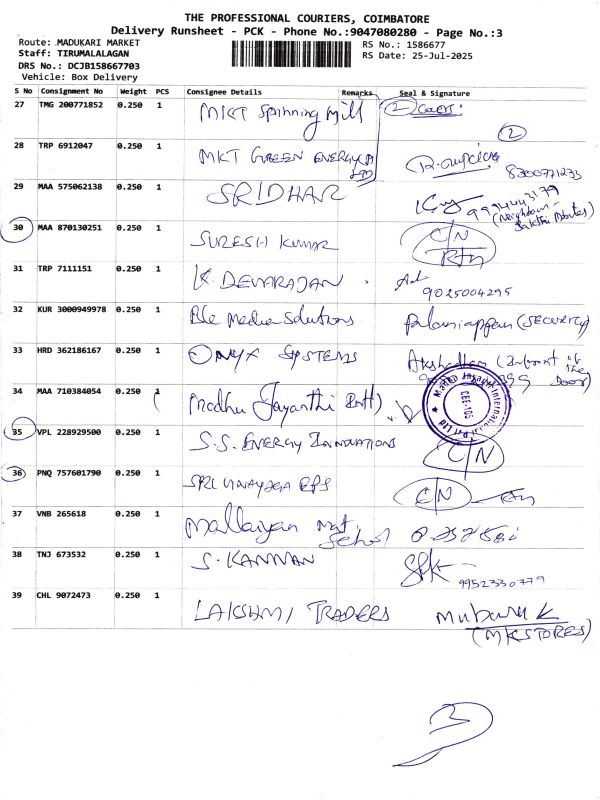 THE PROFESSIONAL COURIERS, COIMBATORE
Delivery Runsheet - PCK - Phone No.:9047080280 - Page No.:3
Route: MADUKARI MARKET RS No.: 1586677
Staff: TIRUMALALAGAN RS Date: 25-Jul-2025
DRS No.: DCJB158667703
Vehicle: Box Delivery
S No Consignment No Weight PCS Consignee Details Remarks Seal & Signature
27 TMG 200771852 0.250 1 MKT Spinning Mill 2 Covers
2
28 TRP 6912047 0.250 1 MKT GREEN ENERGY
8300771233
29 MAA 575062138 0.250 1 SRIDHAR 9994443179
(Neighbour
30 MAA 870130251 0.250 1 SURESH KUMAR C/N
Rtn
31 TRP 7111151 0.250 1 K. DEVARAJAN
9025004295
32 KUR 3000949978 0.250 1 Ble Media Solutions Palaniappan (SECURITY)
33 HRD 362186167 0.250 1 ONYX SYSTEMS (Infront of the
Door)
34 MAA 710384054 0.250 1 Madhu Jayanthi Intl) CEE-105
35 VPL 228929500 0.250 1 S.S. ENERGY INNOVATIONS C/N
36 PNQ 757601790 0.250 1 SRI VINAYAGA EPS C/N Rtn
37 VNB 265618 0.250 1 Mallaiyan Mat. School
38 TNJ 673532 0.250 1 S. KANNAN
9952330779
39 CHL 9072473 0.250 1 LAKSHMI TRADERS Mubarak
(MK STORES)
3